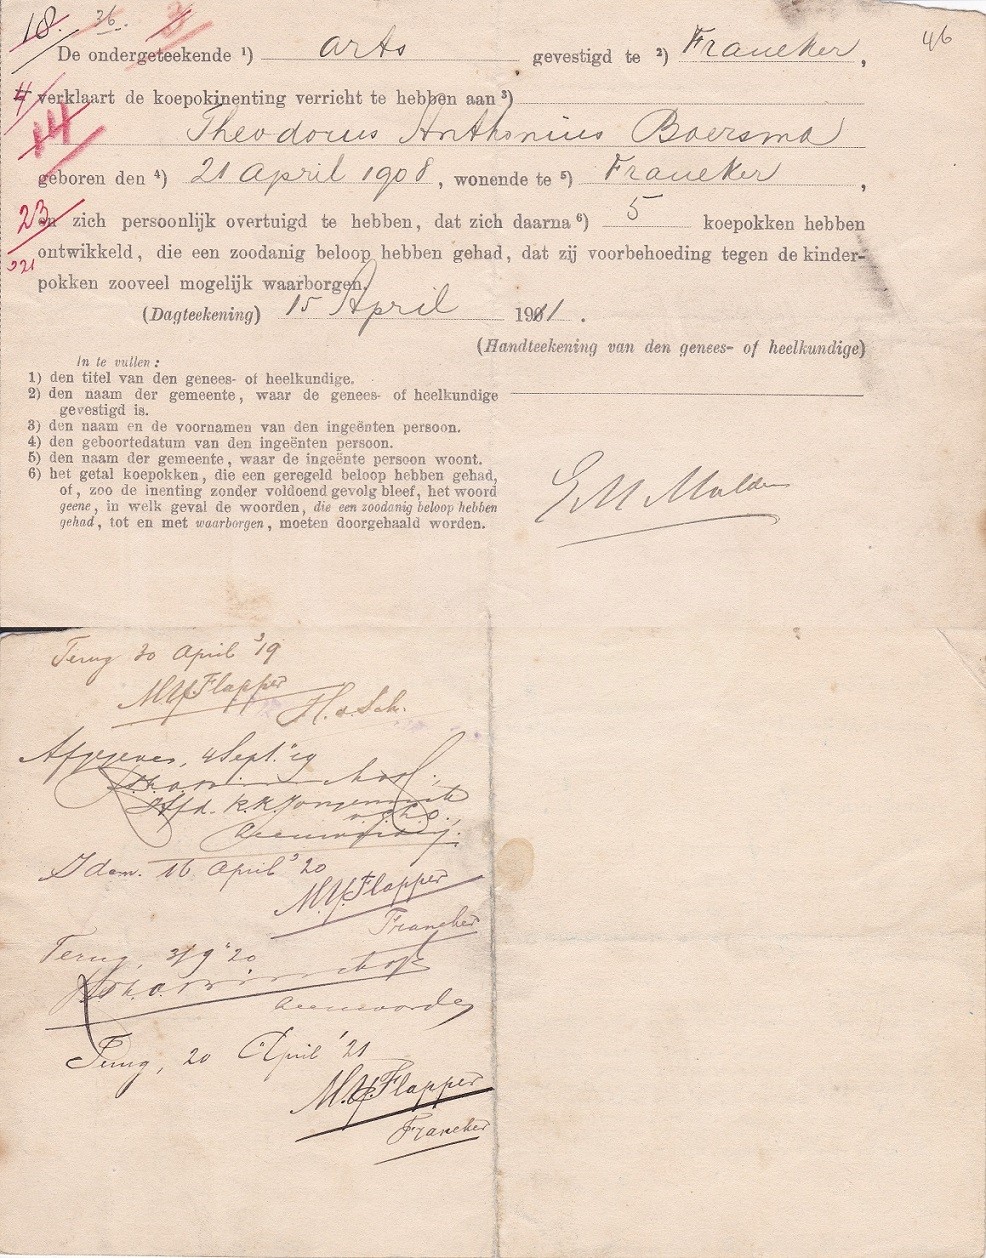 18. 36. 3
De ondergeteekende 1) arts gevestigd te 2) Franeker,
46
4 verklaart de koepokinenting verricht te hebben aan 3)
14 Theodorus Anthonius Boersma
geboren den 4) 21 April 1908, wonende te 5) Franeker,
23 en zich persoonlijk overtuigd te hebben, dat zich daarna 6) 5 koepokken hebben
ontwikkeld, die een zoodanig beloop hebben gehad, dat zij voorbehoeding tegen de kinder-
21
pokken zooveel mogelijk waarborgen.
(Dagteekening) 15 April 1911.
(Handteekening van den genees- of heelkundige)
In te vullen:
1) den titel van den genees- of heelkundige.
2) den naam der gemeente, waar de genees- of heelkundige
gevestigd is.
3) den naam en de voornamen van den ingeënten persoon.
4) den geboortedatum van den ingeënten persoon.
5) den naam der gemeente, waar de ingeënte persoon woont.
6) het getal koepokken, die een geregeld beloop hebben gehad,
of, zoo de inenting zonder voldoend gevolg bleef, het woord
geene, in welk geval de woorden, die een zoodanig beloop hebben
gehad, tot en met waarborgen, moeten doorgehaald worden.
G M Mulder
Terug 30 April '19
M.Y.Flapper
H. d. Sch.
Afgegeven, 4 Sept. '19
Hfd. R.K. Jongens
Idem. 16 April '20
M.Y.Flapper
Franeker
Terug, 3/9 '20
Terug, 20 April '21
M.Y.Flapper
Franeker